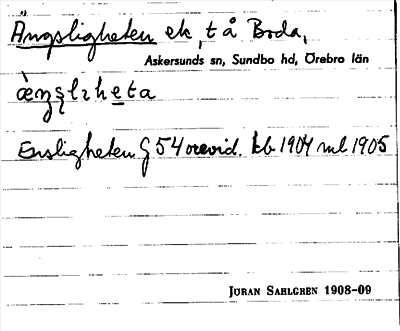 Ängsligheten ek, t å Boda,
Askersunds sn, Sundbo hd, Örebro län
æŋşlıheta
Ensligheten G 54 orevid. kb 1904 ml 1905
JÖRAN SAHLGREN 1908-09